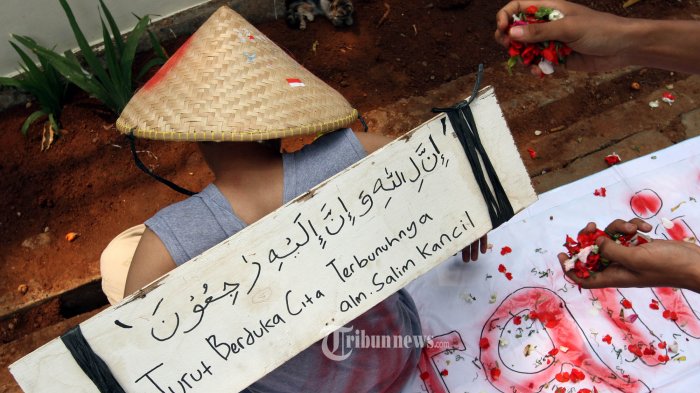 إِنَّ لِلّٰهِ وَإِنَّ إِلَيْهِ رَاجِعُوْنَ
Turut Berduka Cita Terbunuhnya
alm. Salim Kancil
Tribunnews.com